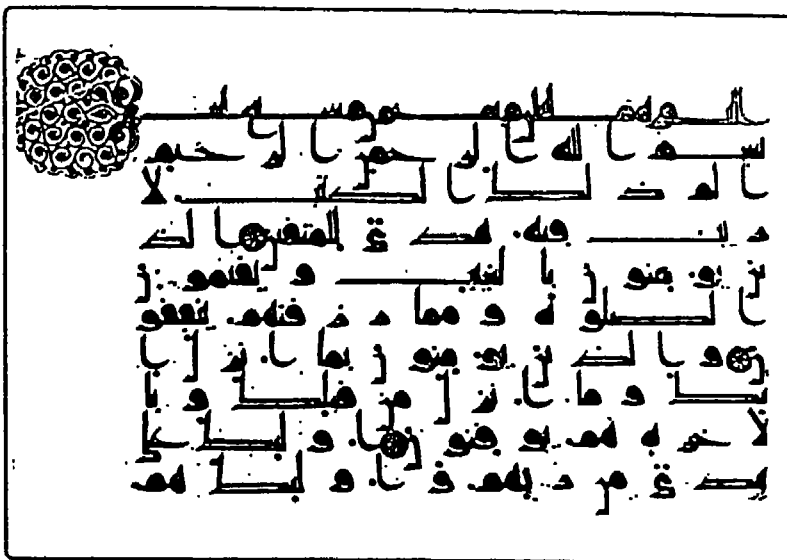 بسم الله الرحمن الرحيم
الم ذلك الكتب لا
ريب فيه هدى للمتقين الذ
ين يومنون بالغيب و يقيمون
الصلوة و مما رزقنهم ينفقو
ن و الذين يومنون بما انزل ا
ليك و ما انزل من قبلك و با
لاخرة هم يوقنون اولئك على
هدى من ربهم و اولئك هم